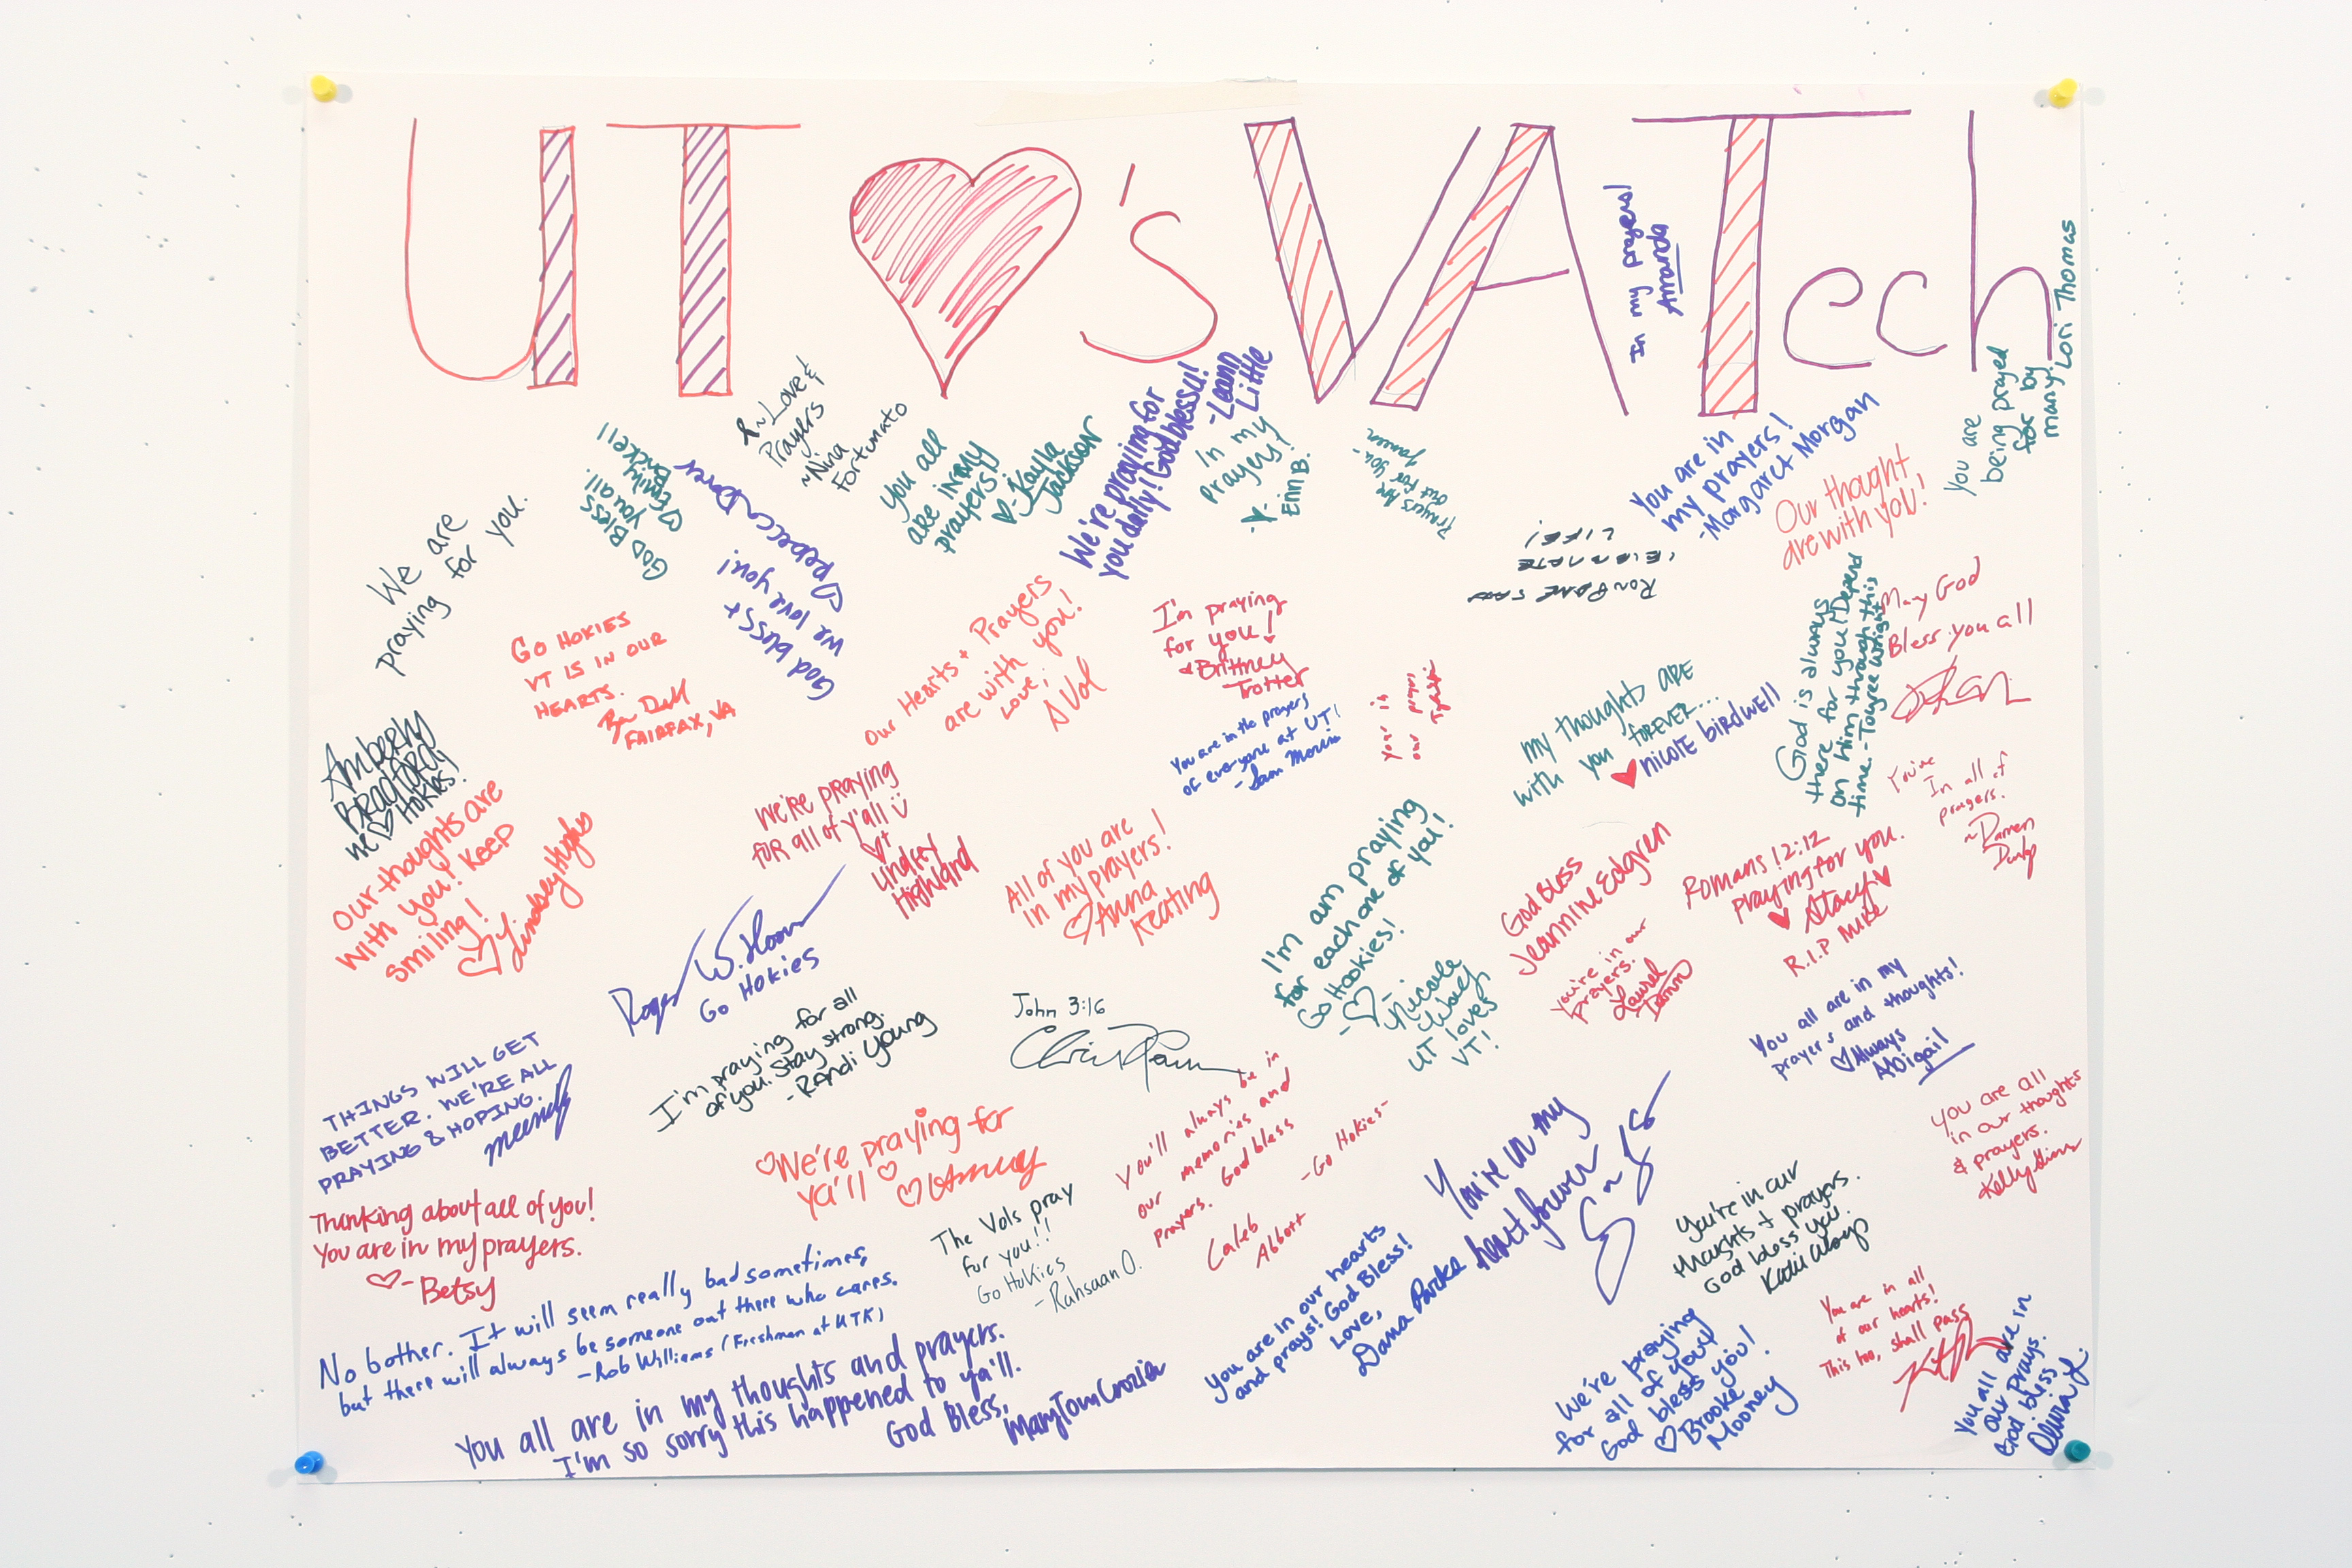 UT ♥'s VA Tech
In my prayers!
Amanda
You are
being prayed
for by
many!
Lori Thomas
~Love &
Prayers
~Nina
Fortunato
God Bless
you all.
♡ Emily
Brickell
God bless +
we love you!
♡ Rebecca Dover
you all
are in my
prayers!
♡-Kayla
Jackson
We're praying for
you daily! God bless u!
-Leann
Little
In my
prayers!
Erin B.
Prayers are
out for you-
You are in
my prayers!
-Margaret Morgan
Our thought
are with you!
We are
praying
for you.
Go Hokies
VT is in our
hearts.
Fairfax, VA
Our Hearts + Prayers
are with you!
Love,
A Vol
I'm praying
for you!
Brittney
Trotter
LIFE!
You are in the prayers
of everyone at UT!
-Sam Morris
your in
our
my thoughts are
with you forever...
♥ nicole birdwell
God is always
there for you! Depend
on Him through this
time.-Tayree Wright
May God
Bless you all
Amberly
Bradford
we ♡ Hokies!
our thoughts are
with you! Keep
smiling!
♡ Lindsey Hughs
We're praying
for all of y'all
Lindsay
Highland
All of you are
in my prayers!
♡ Anna
Keating
I'm am praying
for each one of you!
Go Hookies!
-♡ Nicole
UT loves
VT!
God Bless
Jeannine Edgren
you're in our
prayers.
Laurel
Romans 12:12
praying for you.
♥ Stacy ♥
R.I.P Mike
You're
In all of
prayers.
~Darren
Roger W.
Go Hokies
I'm praying for all
of you. Stay strong.
-Randi Young
John 3:16
You all are in my
prayers and thoughts!
♡ Always
Abigail
you are all
in our thoughts
& prayers.
Kelly
Things will get
better. We're all
praying & hoping.
♡We're praying for
ya'll ♡
♡ Amy
You'll always be in
our memories and
prayers. God bless
-Go Hokies-
Caleb
Abbott
You're in my
Thinking about all of you!
You are in my prayers.
♡-Betsy
The Vols pray
for you!!
Go Hokies
-Rahsaan O.
you are in our hearts
and prays! God Bless!
Love,
Dana
You're in our
thoughts + prayers.
God bless you.
No bother. It will seem really bad sometimes,
but there will always be someone out there who cares.
-Rob Williams (Freshman at UTK)
You all are in my thoughts and prayers.
I'm so sorry this happened to ya'll.
God Bless,
Mary Tom Crozier
We're praying
for all of you!
God bless you!
♡ Brooke
Mooney
You are in all
of our hearts!
This too, shall pass
you all are in
our prays.
God bless